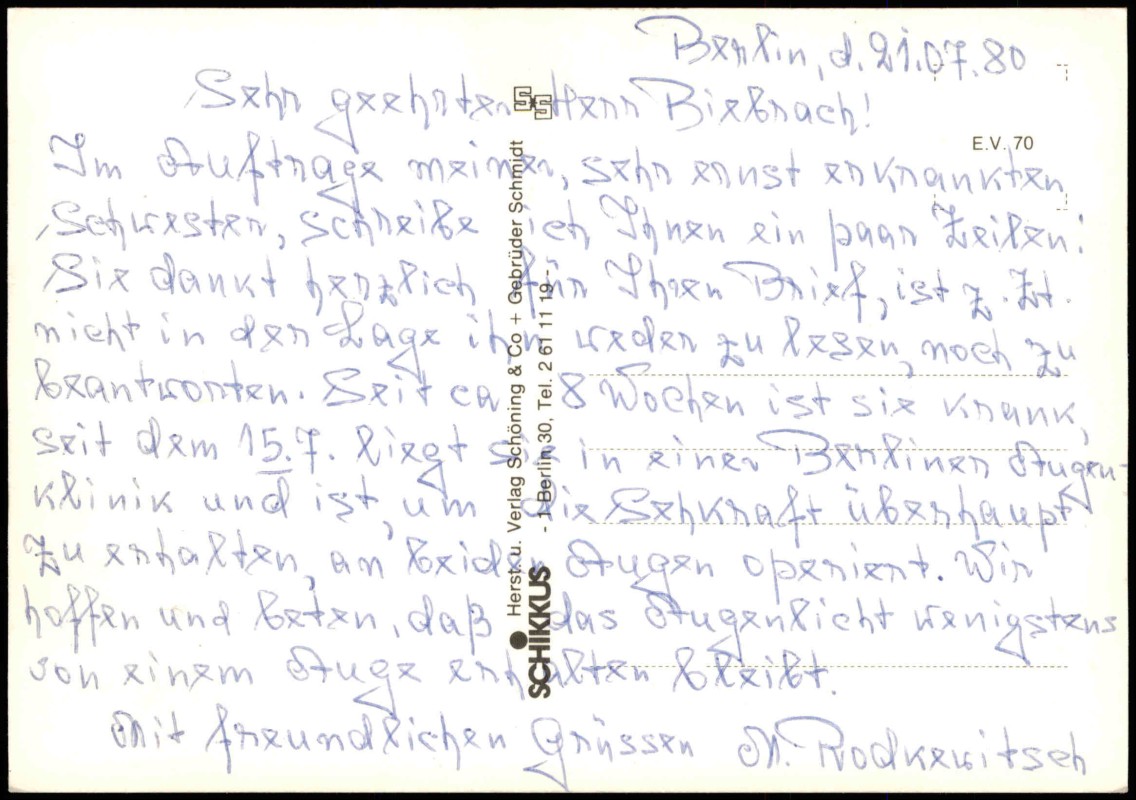 Berlin, d. 21.07.80
Sehr geehrter Herr Biebrach!
Im Auftrage meiner, sehr ernst erkrankten
Schwester, schreibe ich Ihnen ein paar Zeilen:
Sie dankt herzlich für Ihren Brief, ist z. Zt.
nicht in der Lage ihn weder zu lesen, noch zu
beantworten. Seit ca. 8 Wochen ist sie krank,
seit dem 15.7. liegt sie in einer Berliner Augen-
klinik und ist, um die Sehkraft überhaupt
zu erhalten, an beiden Augen operiert. Wir
hoffen und beten, daß das Augenlicht wenigstens
von einem Auge erhalten bleibt.
Mit freundlichen Grüssen M. Rodkewitsch
E.V. 70
SCHIKKUS
Herst. u. Verlag Schöning & Co + Gebrüder Schmidt
- 1 Berlin 30, Tel. 2 61 11 19 -